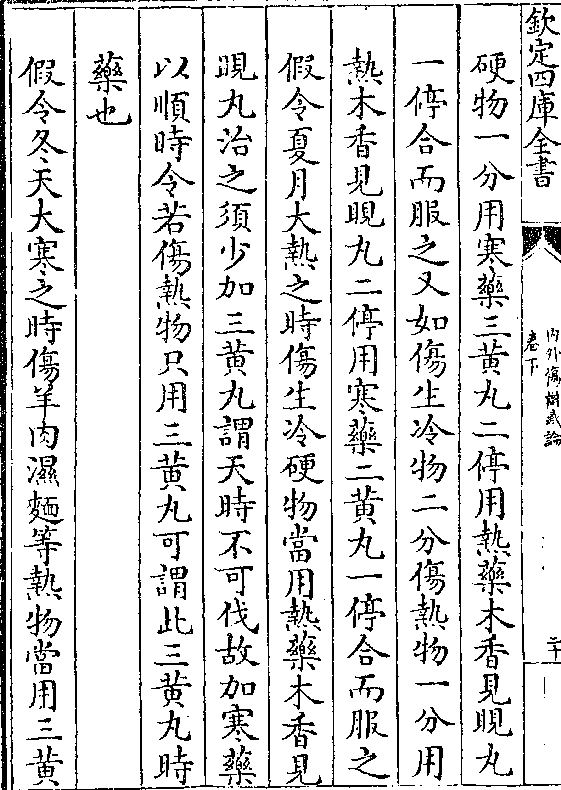 欽定四庫全書
內外傷辨惑論
卷下
二十
硬物一分用寒藥三黃丸二停用熱藥木香見晛丸
一停合而服之又如傷生冷物二分傷熱物一分用
熱木香見晛丸二停用寒藥二黃丸一停合而服之
假令夏月大熱之時傷生冷硬物當用熱藥木香見
晛丸治之須少加三黃丸謂天時不可伐故加寒藥
以順時令若傷熱物只用三黃丸可謂此三黃丸時
藥也
假令冬天大寒之時傷羊肉濕麵等熱物當用三黃